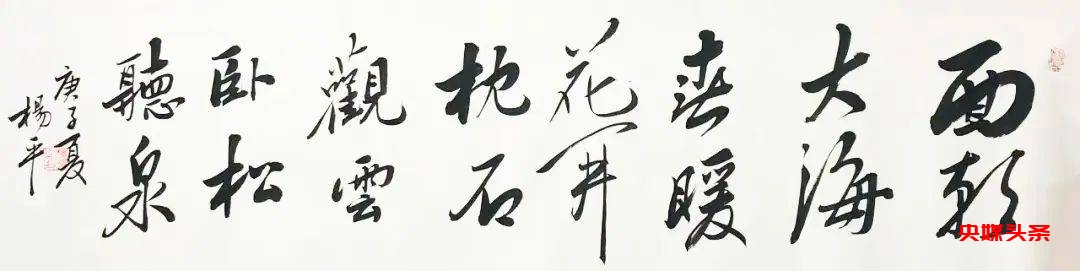 面朝
大海
春暖
花开
枕石
觀雲
卧松
聽泉
庚子夏
楊平
央媒头条